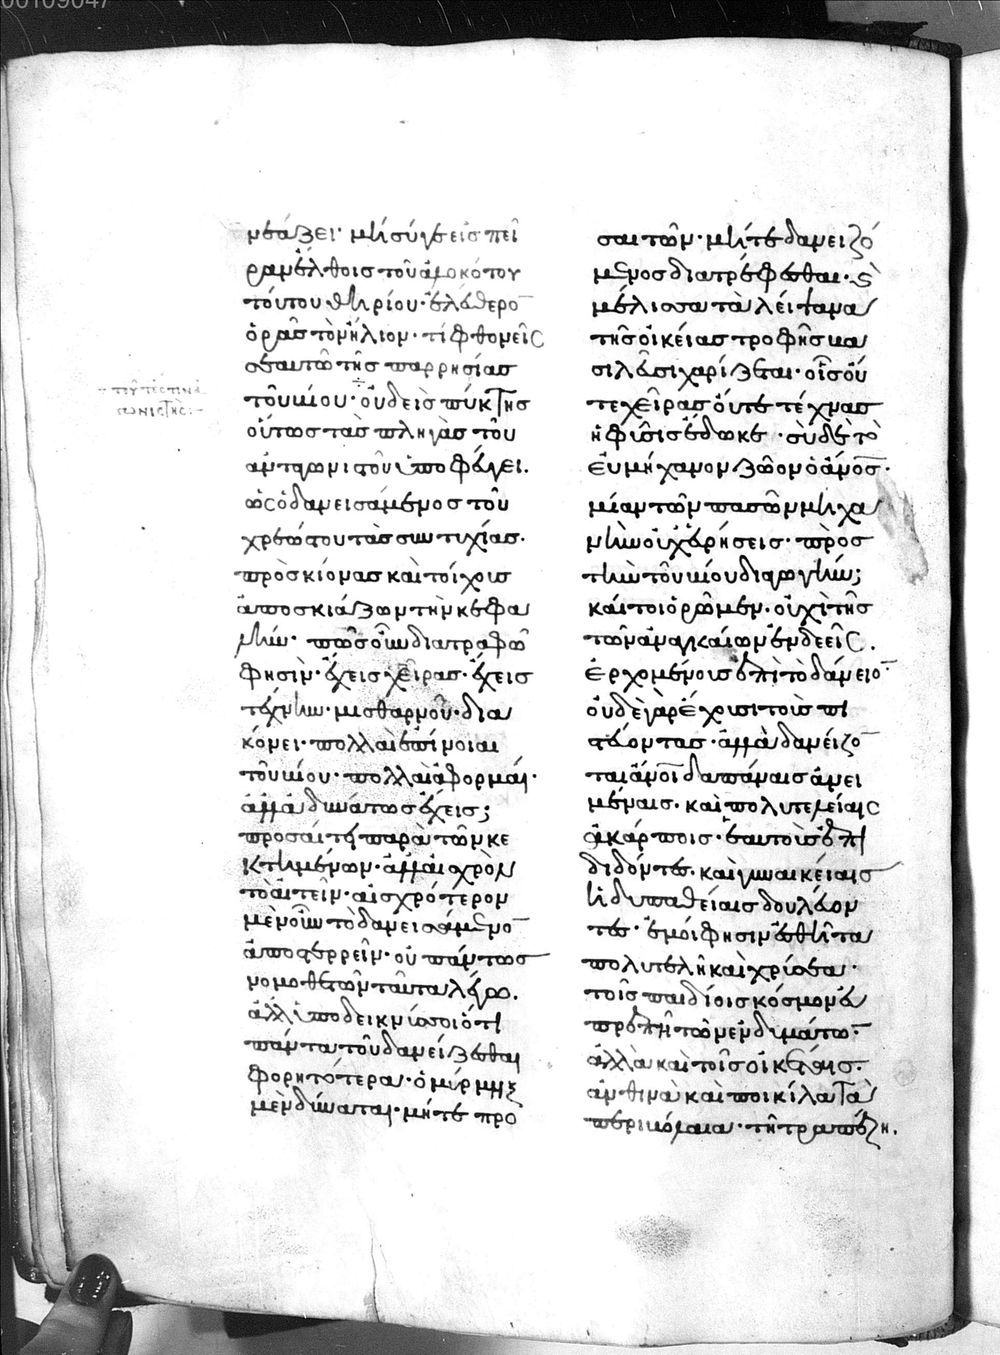 00109047
νεάζει· μὴ σύγε εἰς πεῖ
ραν ἔλθοις τοῦ ἀμοκότου
τούτου θηρίου· ἐλεύθερο̅
ὁρᾶς τὸν ἥλιον· τί φθονεῖς
σεαυτῶ τῆς παρρησίας
τοῦ βίου· οὐδεὶς πύκτης
οὕτως τὰς πληγὰς τοῦ
ἀνταγωνιστοῦ ὑποφεύγει.
ὡς ὁ δανεισάμενος τοῦ
χρεώστου τὰς συντυχίας.
πρὸς κίονας καὶ τοίχοις
ἀποσκιάζων τὴν κεφα
λήν· πῶς οὖν διατραφῶ
φησὶν· ἔχεις χεῖρας· ἔχεις
τέχνην· μισθαρνοῦ· δια
κόνει· πολλαὶ ἐπίνοιαι
τοῦ βίου· πολλαὶ ἀφορμαί·
ἀλλ' ἀδυνάτως ἔχεις;
προσαίτει παρὰ τῶν κε
κτημένων· ἀλλ' αἰσχρὸν
τὸ αἰτεῖν· αἰσχρότερον
μὲν οὖν τὸ δανεισάμενο̅
ἀποστερεῖν· οὐ πάντως
νομοθετῶν ταῦτα λέγω.
ἀλλ' ὑποδεικνύς σοι ὅτι
πάντα τοῦ δανείζεσθαι
φορητότερα· ὁ μύρμηξ
μὲν δύναται· μήτε προ
πευτέστιν ἀ
γωνιστής:
σαιτῶν· μήτε δανειζό
μενος διατρέφεσθαι· ϗ
μέλισσα τὰ λείψανα
τῆς οἰκείας τροφῆς βα
σιλεῦσι χαρίζεται· οἷς οὔ
τε χεῖρας οὔτε τέχνας
ἡ φύσις ἔδωκε· σὺ δὲ τὸ
εὐμήχανον ζῶον ὁ ἄνο̅ς·
μίαν τῶν πασῶν μηχα
νὴν οὐχ εὑρήσεις· πρὸς
τὴν τοῦ βίου διαγωγήν;
καίτοι ὁρῶμεν· οὐχὶ τῆς
τῶν ἀναγκαίων ἐνδεεῖς.
ἐρχομένους ἐπὶ τὸ δάνειο̅
οὐδὲ γὰρ ἔχουσι τοὺς πι
στεύοντας· ἀλλὰ δανείζο̅
ται ἄνοι̅ δαπάναις ἀνει
μέναις· καὶ πολυτελείαις
ἀκάρποις· ἑαυτοὺς ἐπι
διδόντες· καὶ γυναικείαις
ἡδυπαθείαις δουλεύον
τες· ἐμοί φησιν ἐσθῆτα
πολυτελῆ καὶ χρύσεα·
τοῖς παιδίοις κόσμον εὐ
πρεπῆ τῶν ἐνδυμάτω̅·
ἀλλὰ καὶ τοῖς οἰκέταις.
ἀνθινὰ καὶ ποικίλα τὰ
περιβόλαια· τῆ τραπέζη.